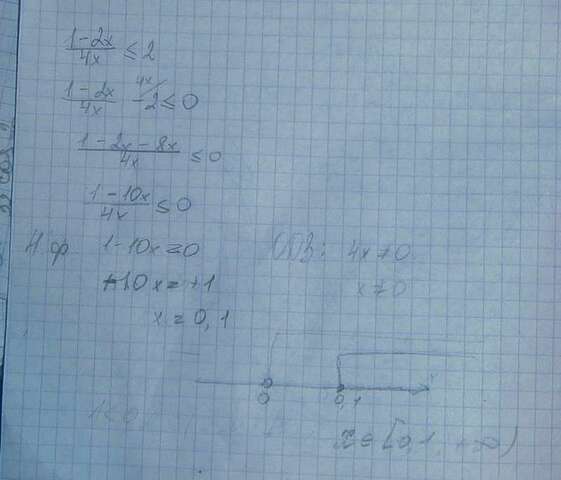 1-2x/4x ≤ 2
1-2x/4x -2 4x/ ≤ 0
1-2x-8x/4x ≤ 0
1-10x/4x ≤ 0
Н.ф 1-10x=0 ОДЗ: 4x≠0
+10x=+1 x≠0
x=0,1
0 0,1
x∈[0,1; +∞)